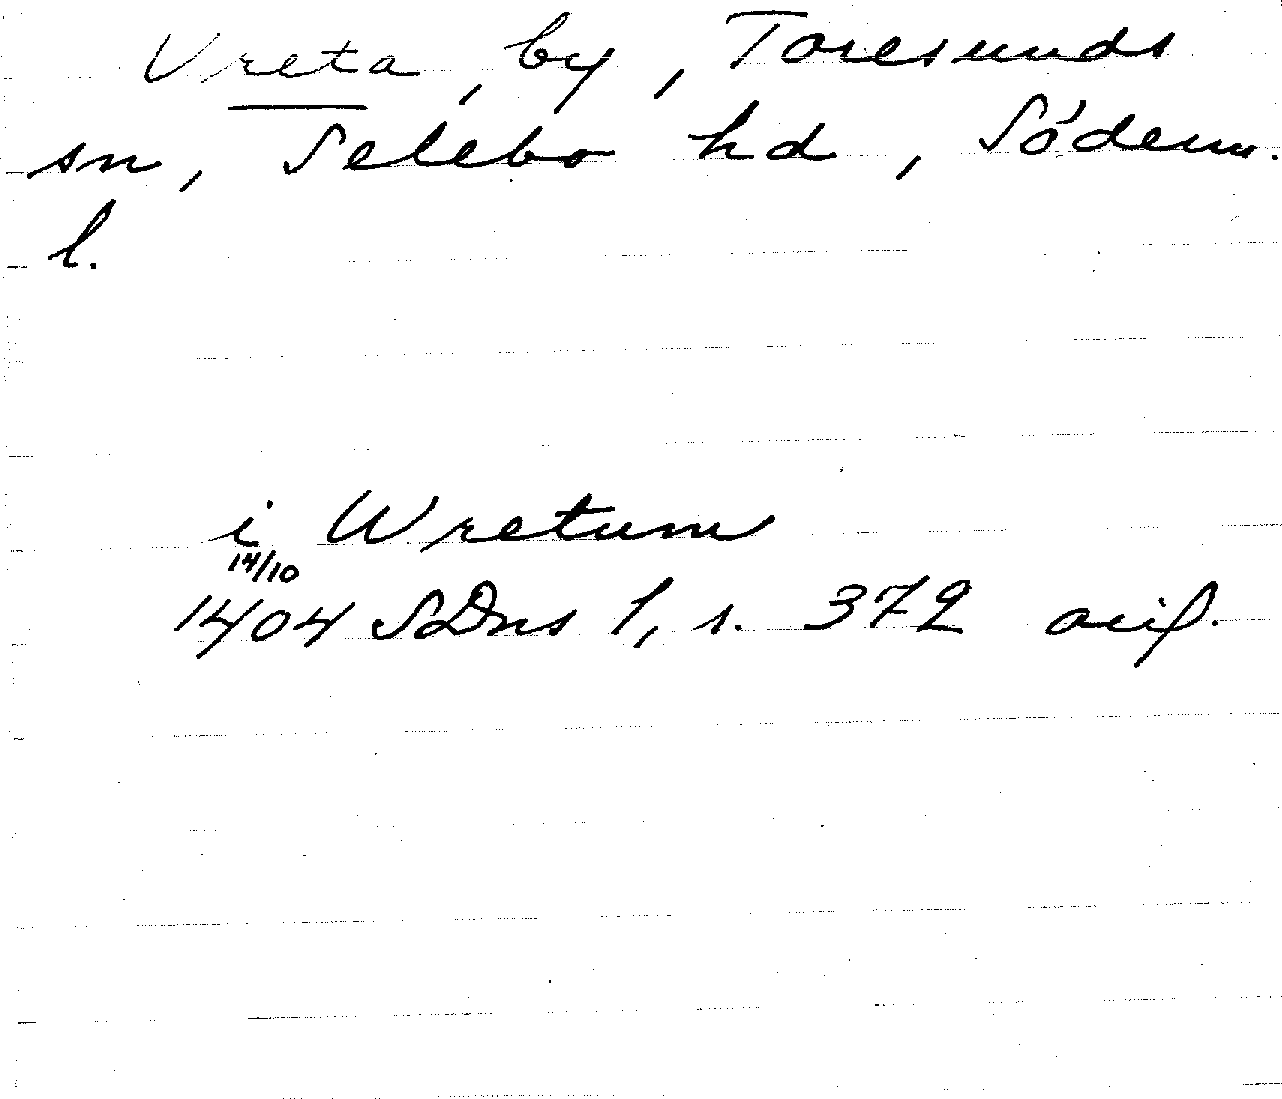 Vreta, by, Toresunds
sn, Selebo hd, Söderm.
l.
i Wretum
14/10
1404 SDns 1, s. 372 avs.